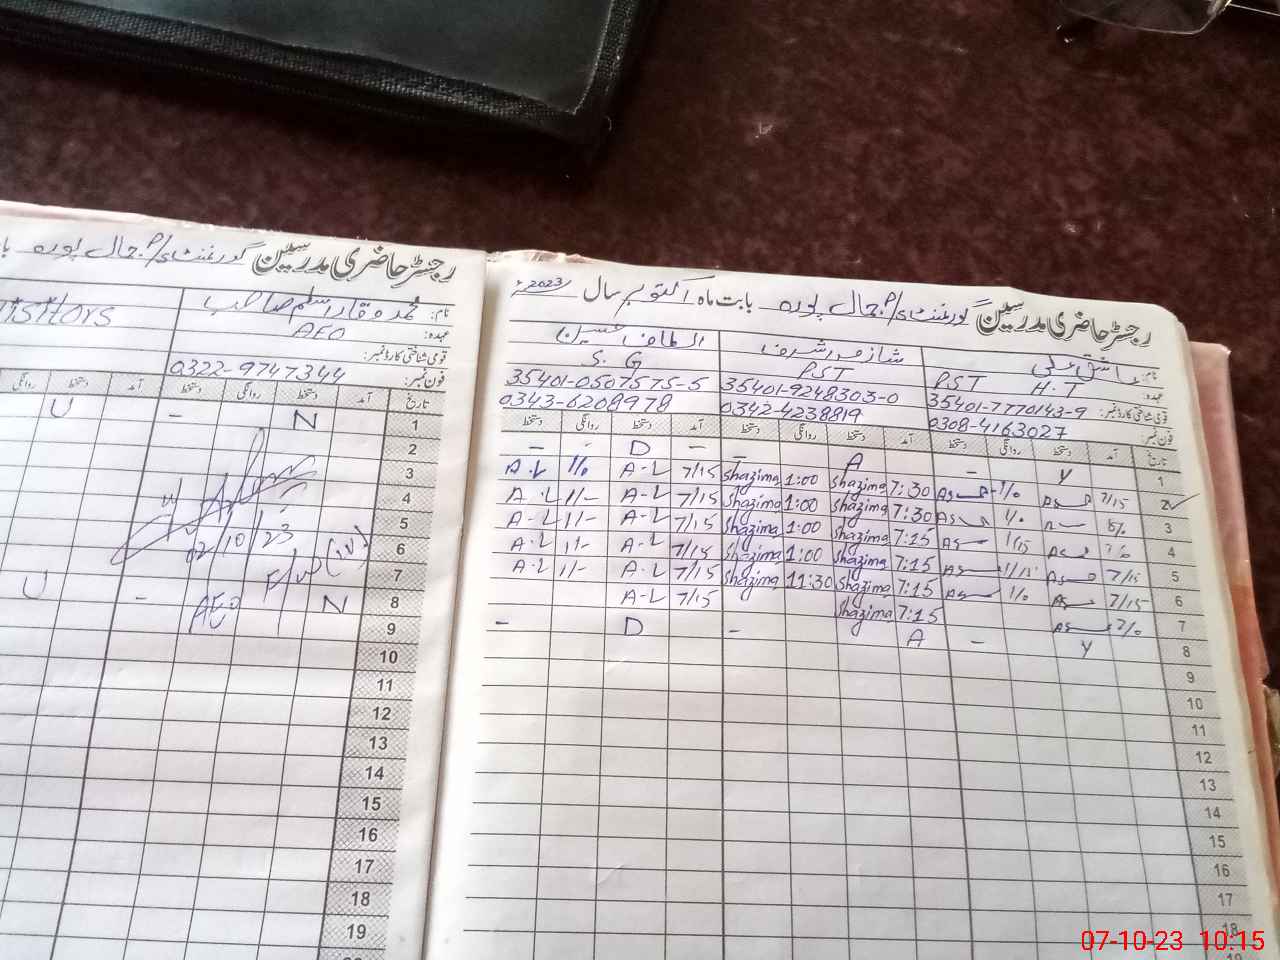 رجسٹر حاضری مدرسین گورنمنٹ P/S جمال پورہ بابت ماہ اکتوبر سال 2023ء
نام: عاشق علی شازمہ اشرف الطاف حسین
عہدہ: P.S.T H.T PST S.G
قومی شناختی کارڈ نمبر: 35401-7770143-9 35401-9248303-0 35401-0507575-5
فون نمبر: 0308-4163027 0342-4238819 0343-6208978
تاریخ آمد دستخط روانگی دستخط آمد دستخط روانگی دستخط آمد دستخط روانگی دستخط
1 y - A - - D - -
2 7/15 1/0 7:30 Shazima 1:00 Shazima 7/15 A-L 1/0 A.L
3 7:30 Shazima 1:00 Shazima 7/15 A-L 1/- A.L
4 7:15 Shazima 1:00 Shazima 7/15 A-L 1/- A-L
5 7/15 1/15 7:15 Shazima 1:00 Shazima 7/15 A-L 1/- A-L
6 7/15 1/0 7:15 Shazima 11:30 Shazima 7/15 A-L 1/- A-L
7 7/0 7:15 Shazima 7/15 A-L
8 y - A - D -
9
10
11
12
13
14
15
16
17
18
رجسٹر حاضری مدرسین گورنمنٹ P/S جمال پورہ
نام: محمد وقار اسلم صاحب Visitors
عہدہ: AEO
قومی شناختی کارڈ نمبر:
فون نمبر: 0322-9747344
تاریخ آمد دستخط روانگی دستخط آمد دستخط روانگی
1 N - U
2
3
4
5 02/10/23
6
7
8 AEO N - U
9
10
11
12
13
14
15
16
17
18
19
07-10-23 10:15